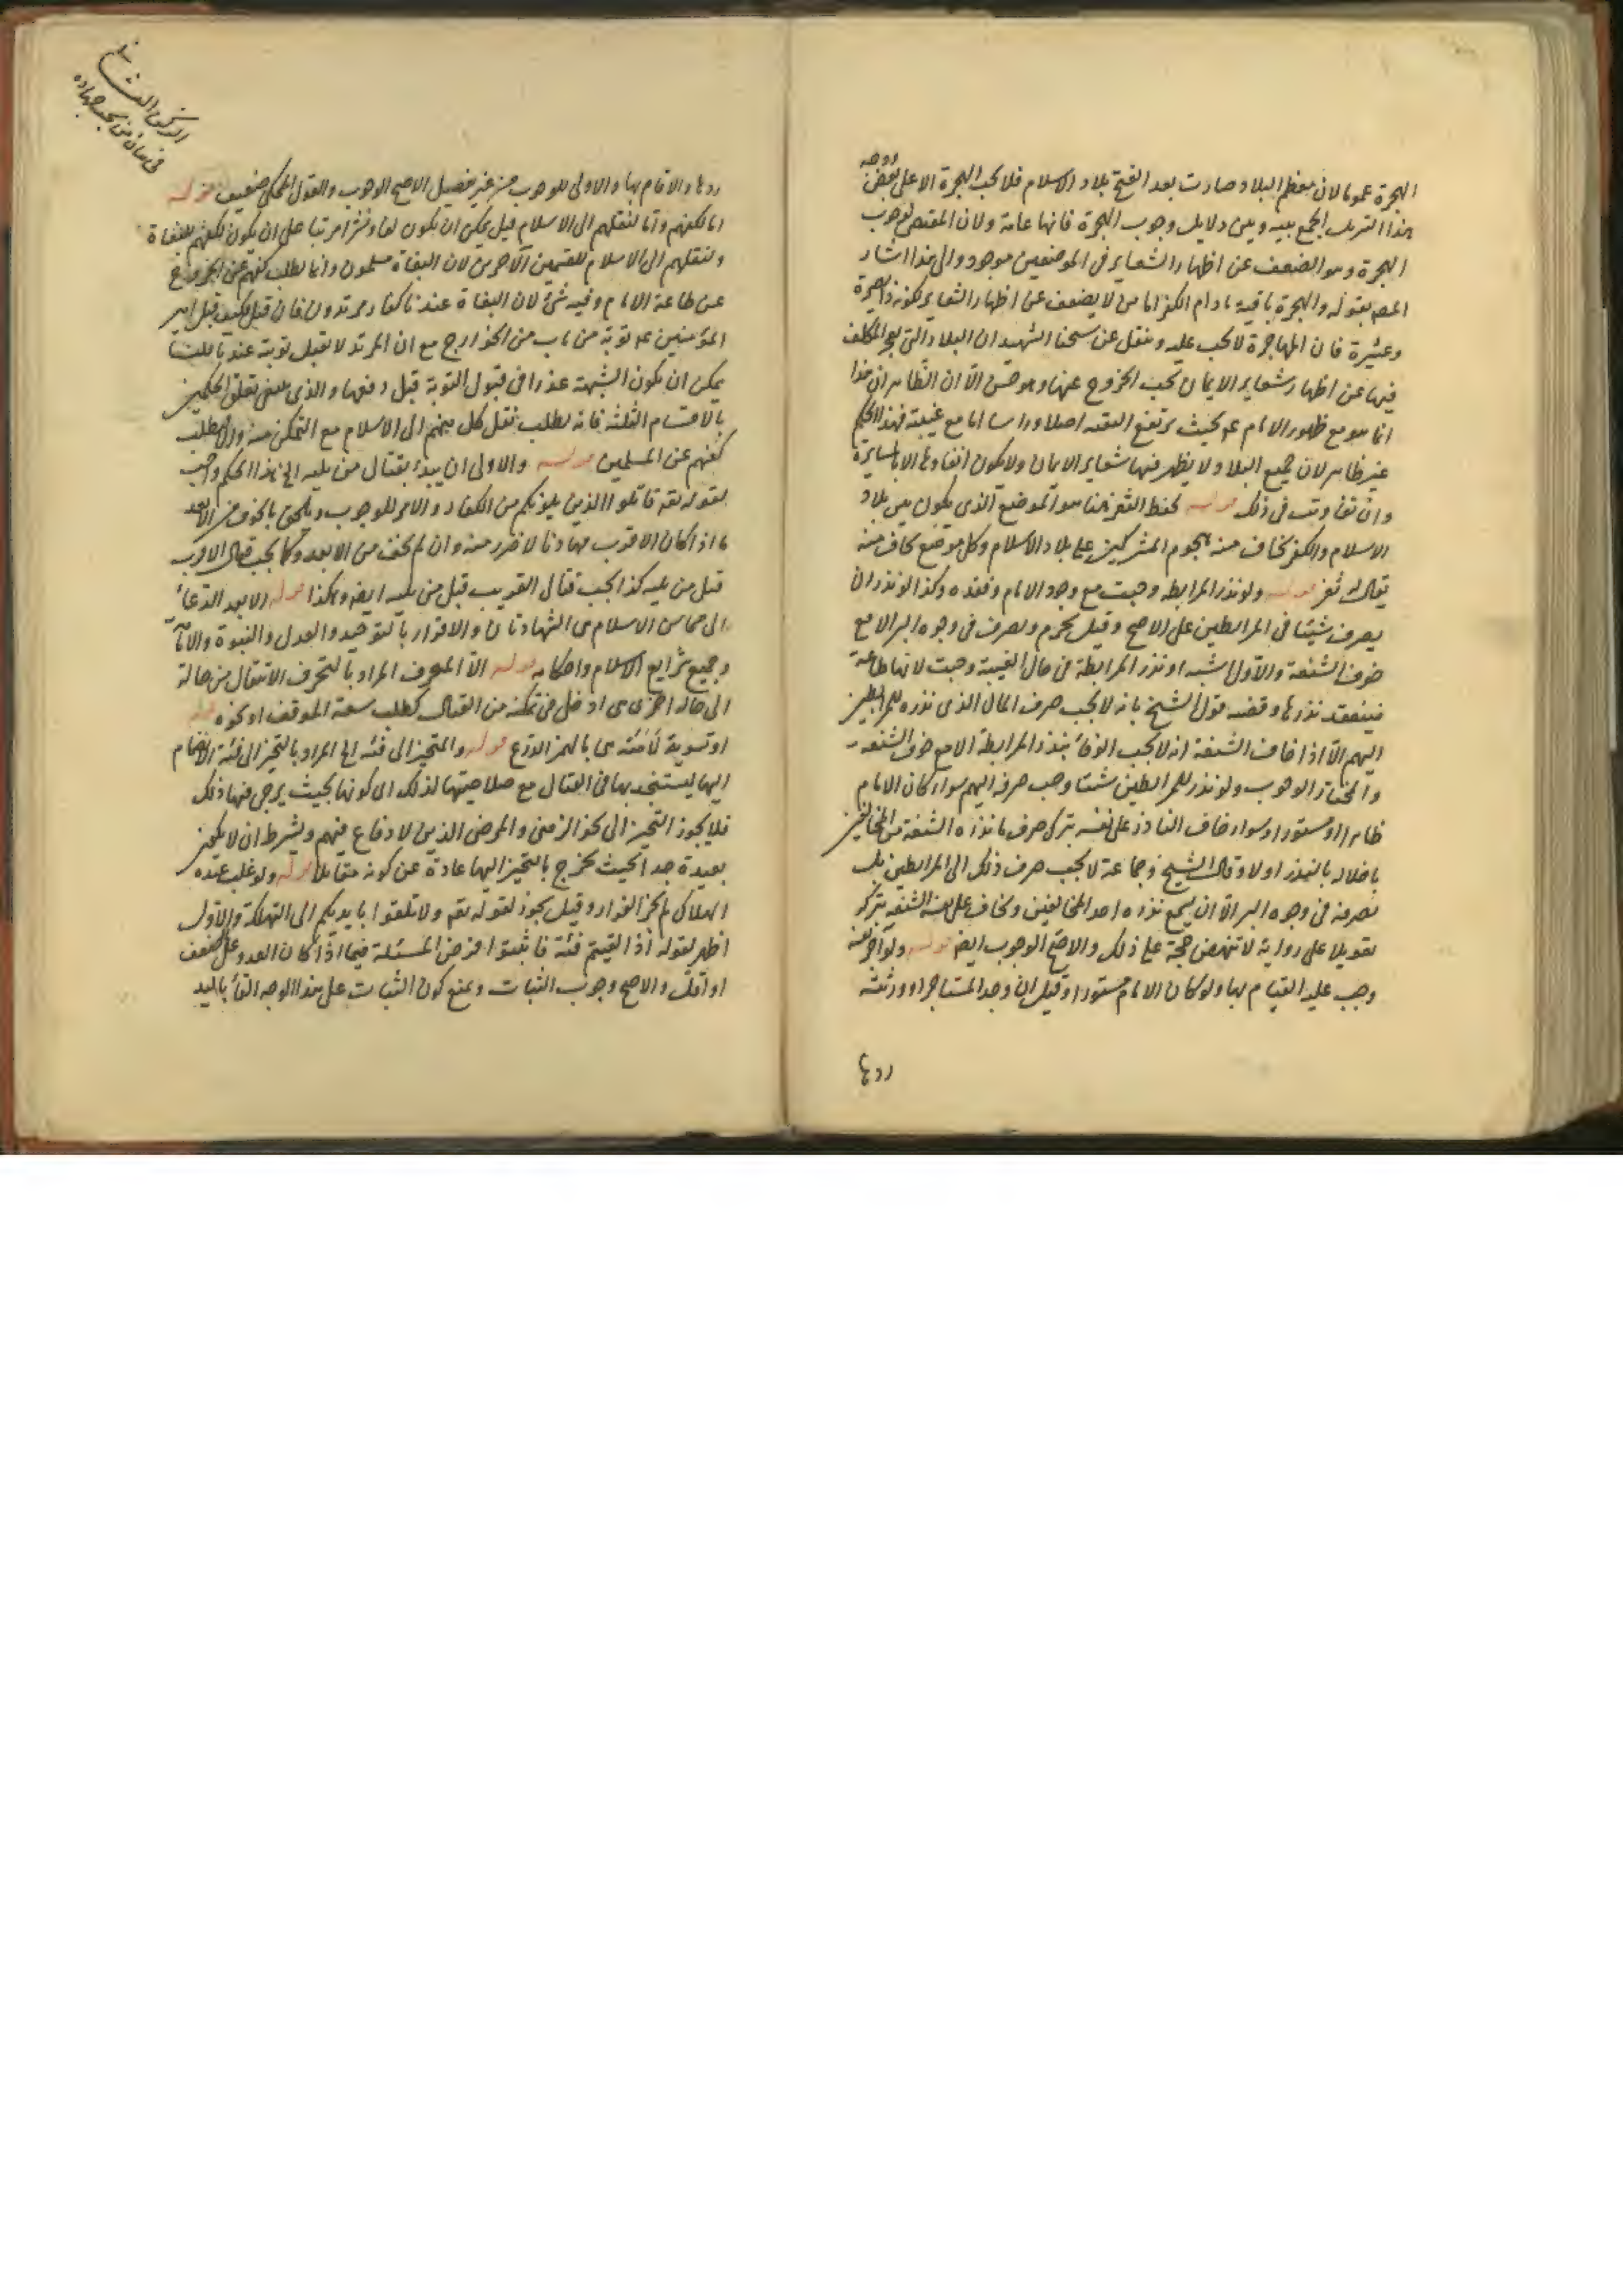 الهجرة عموما لان معظم البلاد صارت بعد الفتح بلاد الاسلام فلا تجب الهجرة الا على بعض
هذا التنزيل الجمع بينه وبين دلايل وجوب الهجرة فانها عامة ولان المقتضى لوجوب
الهجرة وهو الضعف عن اظهار الشعاير في الموضعين موجود والى هذا اشار
المص بقوله والهجرة باقية ما دام الكفر اما من لا يضعف عن اظهار الشعاير لكونه ذا
وعشيرة فان المهاجرة لا تجب عليه ونقل عن شيخنا الشهيد ان البلاد التي يعجز المكلف
فيها عن اظهار شعاير الايمان يجب الخروج عنها وهو حسن الا ان الظاهر ان هذا
انما هو مع ظهور الامام ع بحيث ترتفع التقيه اصلا وراسا اما مع غيبته فهذا الحكم
غير ظاهر لان جميع البلاد لا يظهر فيها شعاير الايمان ولا يكون انفاذها الا بالمسايرة
وان تفاوتت في ذلك قوله لحفظ الثغر هنا هو الموضع الذي يكون بين بلاد
الاسلام والكفر يخاف منه هجوم المشركين على بلاد الاسلام وكل موضع يخاف منه
يقال له ثغر قوله ولو نذر المرابطه وجبت مع وجود الامام وفقده وكذا لو نذر ان
يصرف شيئا في المرابطين على الاصح وقيل يحرم ويصرف في وجوه البر الا مع
خوف الشنعة والاول اشبه لو نذر المرابطة في حال الغيبة وجبت لانها طاعة
فينعقد نذرها وقضيه قول الشيخ بانه لا يجب صرف المال الذي نذره للمرابطين
اليهم الا اذا خاف الشنعة انه لا يجب الوفاء بنذر المرابطة الا مع خوف الشنعه
والمختار الوجوب ولو نذر للمرابطين شيئا وجب صرفه اليهم سواء كان الامام
ظاهرا او مستورا وسواء خاف الناذر على نفسه بترك صرف ما نذره الشنعة من المخالفين
باخلاله بالنذر او لا وقال الشيخ وجماعة لا يجب صرف ذلك الى المرابطين بل
يصرفه في وجوه البر الا ان يسمع نذره احد المخالفين ويخاف على نفسه الشنعه بتركه
تعويلا على رواية لا تنهض حجة على ذلك والاصح الوجوب ايضا قوله ولو آجر نفسه
وجب عليه القيام بها ولو كان الامام مستورا وقيل ان وجد المستاجر او ورثته
ردها
ردها والا قام بها والاولى للوجوب من غير تفصيل الاصح الوجوب والقول المحكي ضعيف قوله
اما لكفهم واما لنقلهم الى الاسلام قيل يمكن ان يكون لفا ونشرا مرتبا على ان يكون لكفهم للبغاة
ولنقلهم الى الاسلام للقسمين الآخرين لان البغاة مسلمون وانما يطلب كفهم عن الخروج
عن طاعة الامام وفيه شئ لان البغاة عندنا كفار مرتدون فان قيل فكيف قبل امير
المؤمنين ع توبة من تاب من الخوارج مع ان المرتد لا تقبل توبته عندنا قلنا
يمكن ان يكون الشبهة عذرا في قبول التوبة قبل دفعها والذي ينبغي تعلق الحكمين
بالاقسام الثلثه فانه يطلب نقل كل منهم الى الاسلام مع التمكن منه والا يطلب
كفهم عن المسلمين قوله والاولى ان يبدأ بقتال من يليه الخ هذا الحكم واجب
لقوله تعه قاتلوا الذين يلونكم من الكفار والامر للوجوب ويلحق بالخوف من الابعد
ما اذا كان الاقرب مهادنا لا ضرر منه وان لم يخف من الابعد وكما يجب قتال الاقرب
قبل من يليه كذا يجب قتال القريب قبل من يليه ايضا وهكذا قوله الا بعد الدعاء
الى محاسن الاسلام هى الشهادتان والاقرار بالتوحيد والعدل والنبوة والامامة
وجميع شرايع الاسلام واحكامه قوله الا المتحرف المراد بالتحرف الانتقال من حالة
الى حالة اخرى هى ادخل في تمكنه من القتال كطلب سعة الموقف او نحوه قوله
او تسوية لأمته هى بالهمز الدرع قوله والمتحيز الى فئه الخ المراد بالتحيز الى فئة الانضمام
اليها ليستنجد بها في القتال مع صلاحيتها لذلك اى كونها بحيث يرجى منها ذلك
فلا يجوز التحيز الى نحو الزمنى والمرضى الذين لا دفاع فيهم ويشترط ان لا يكون
بعيدة جدا بحيث يخرج بالتحيز اليها عادة عن كونه مقاتلا قوله ولو غلب عنده
الهلاك لم يجز الفرار وقيل يجوز لقوله تعه ولا تلقوا بايديكم الى التهلكة والاول
اظهر لقوله اذا لقيتم فئة فاثبتوا فرض المسئلة فيما اذا كان العدو على الضعف
او اقل والاصح وجوب الثبات ويمنع كون الثبات على هذا الوجه القاء باليد